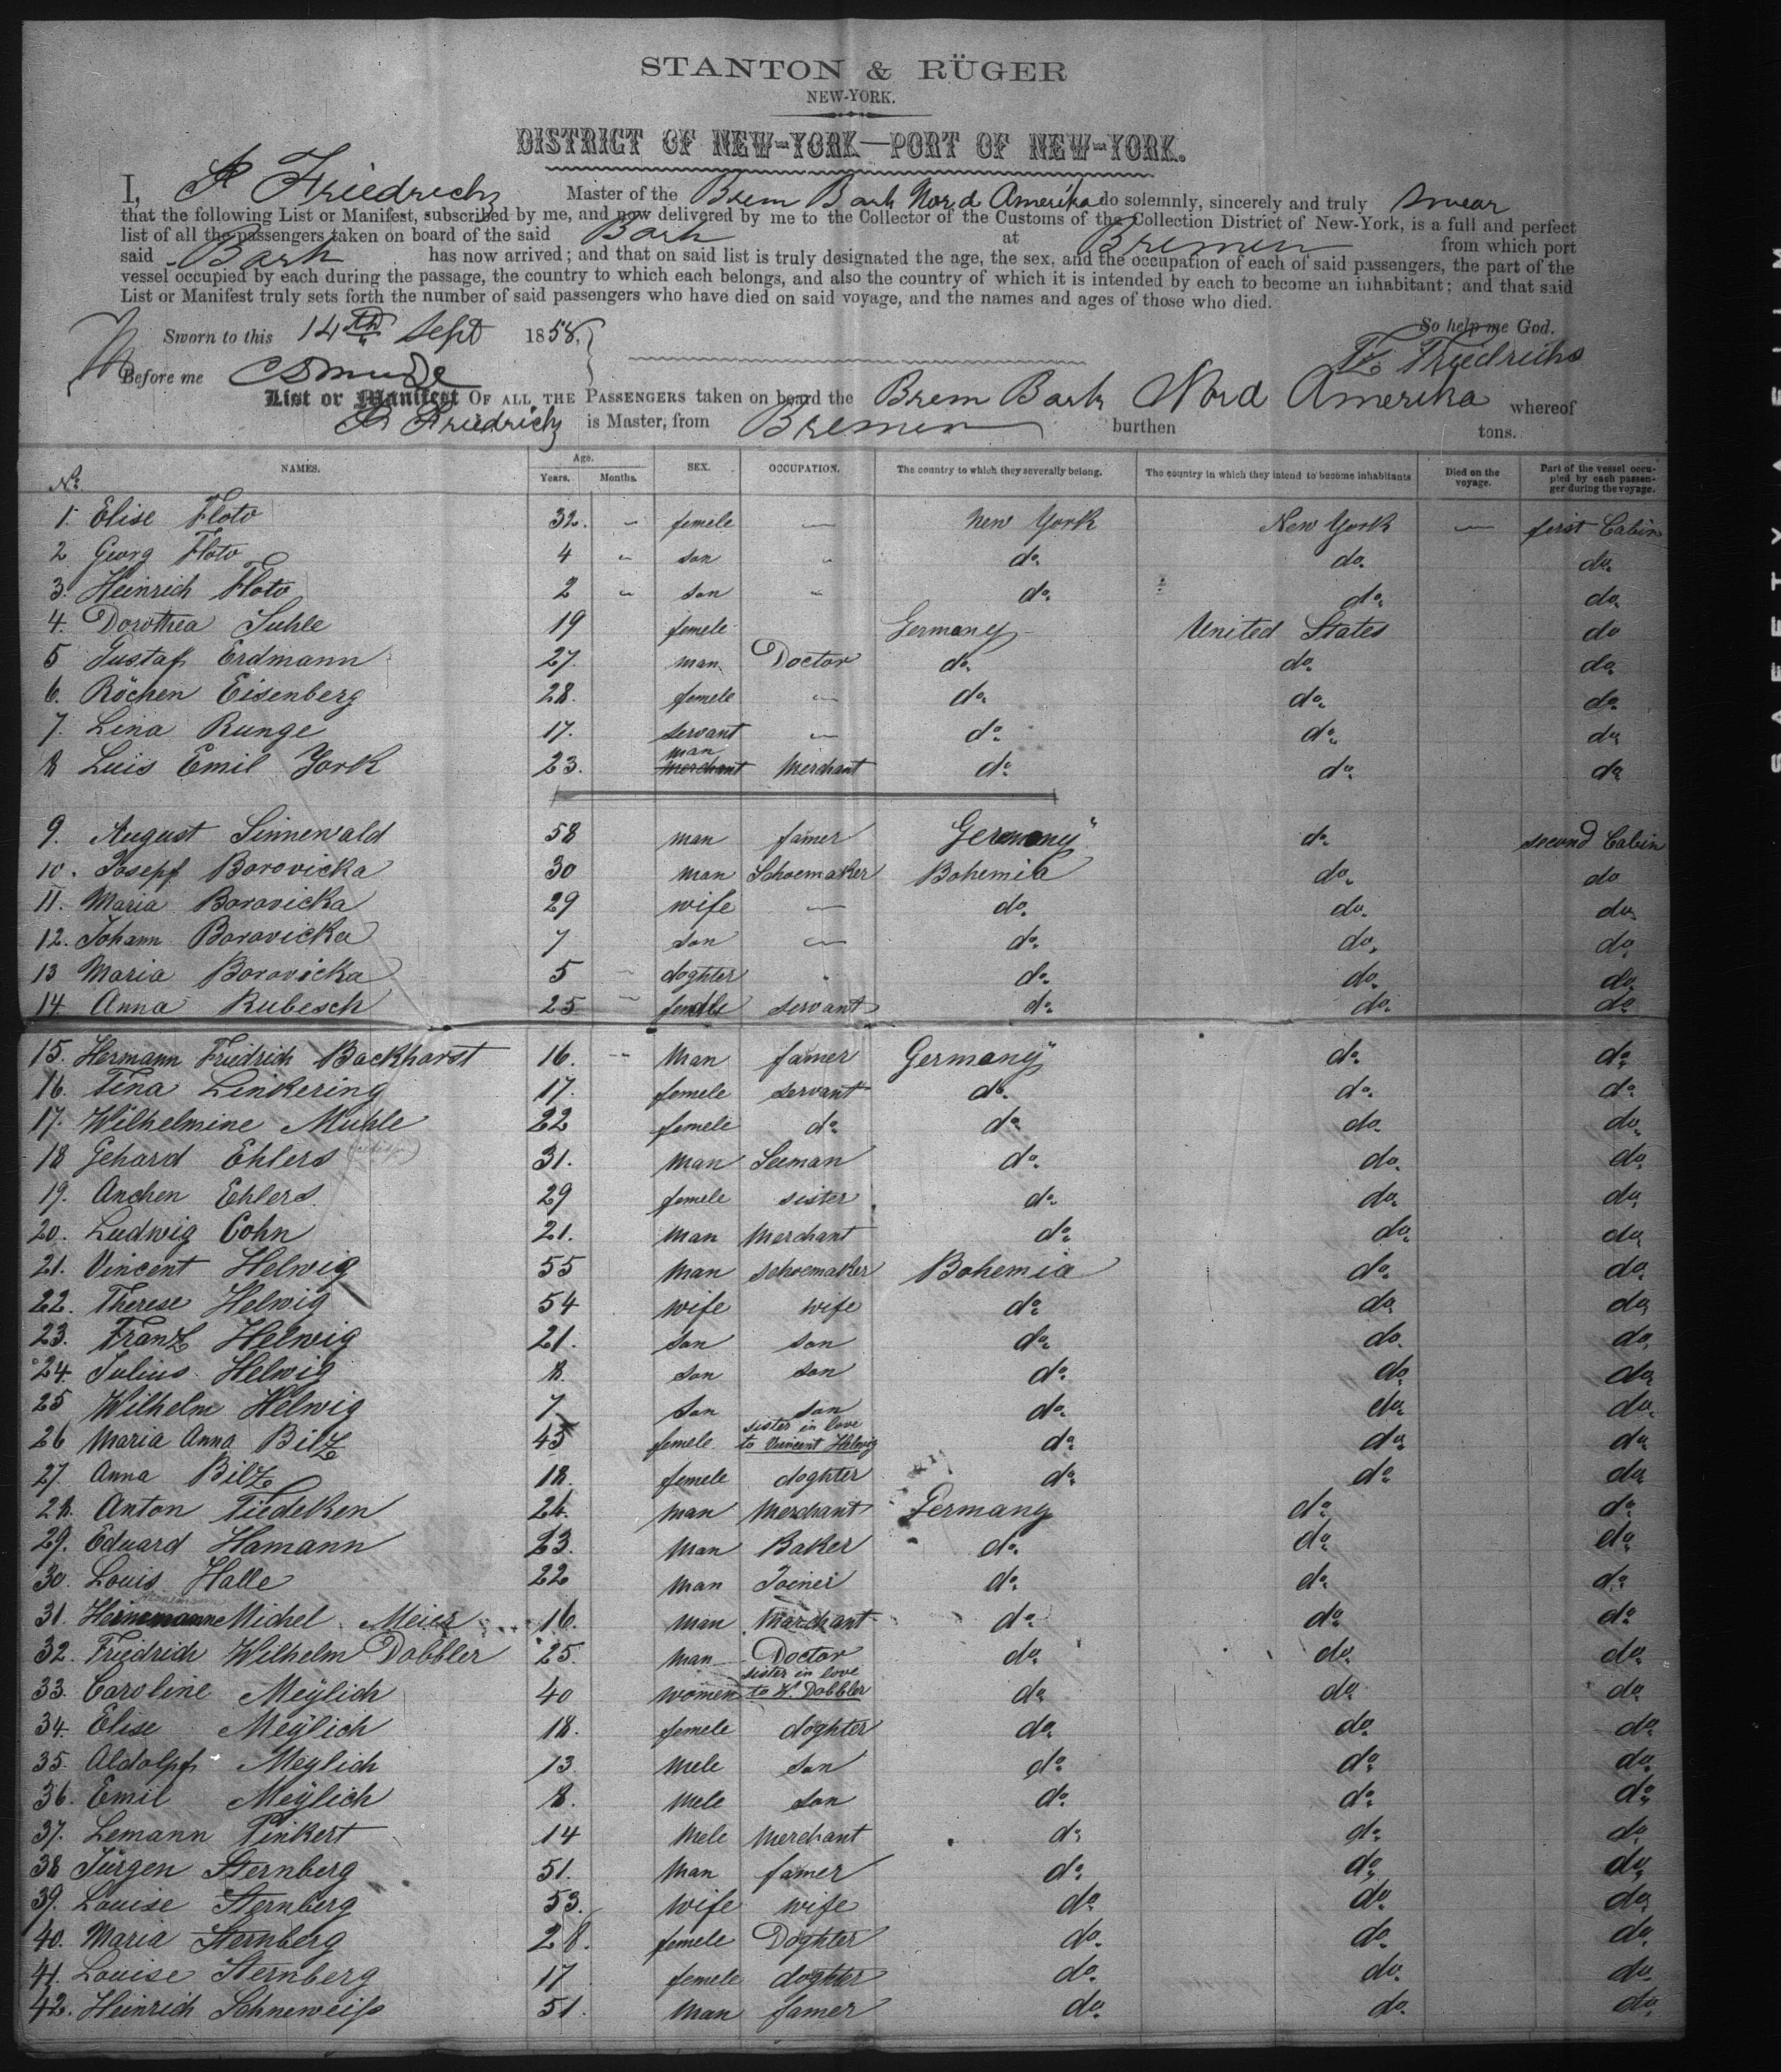 STANTON & RÜGER
NEW-YORK.
DISTRICT OF NEW-YORK—PORT OF NEW-YORK.
I, Friedrichs Master of the Brem Bark Nord Amerika do solemnly, sincerely and truly swear
that the following List or Manifest, subscribed by me, and now delivered by me to the Collector of the Customs of the Collection District of New-York, is a full and perfect
list of all the passengers taken on board of the said Bark at Bremen from which port
said Bark has now arrived; and that on said list is truly designated the age, the sex, and the occupation of each of said passengers, the part of the
vessel occupied by each during the passage, the country to which each belongs, and also the country of which it is intended by each to become an inhabitant; and that said
List or Manifest truly sets forth the number of said passengers who have died on said voyage, and the names and ages of those who died.
So help me God.
Sworn to this 14th Sept 1858,
Friedrichs
Before me
List or Manifest OF ALL THE PASSENGERS taken on board the Brem Bark Nord Amerika whereof
Friedrichs is Master, from Bremen burthen tons.
No. NAMES. Age. Years. Months. SEX. OCCUPATION. The country to which they severally belong. The country in which they intend to become inhabitants Died on the voyage. Part of the vessel occupied by each passenger during the voyage.
1. Elise Floto 32. " femele — New York New York — first Cabin
2 Georg Floto 4 " son " do. do. do.
3. Heinrich Floto 2 " son " do. do. do.
4. Dorothea Suhle 19 femele Germany United States do
5 Gustaf Erdmann 27. man Doctor do. do. do.
6. Röchen Eisenberg 28. femele — do. do. do.
7. Lina Runge 17. servant — do. do. do.
8 Luis Emil York 23. man merchant Merchant do. do. do.
9. August Sinnewald 58 man famer Germany do. second Cabin
10. Josepf Borovicka 30 man Schoemaker Bohemia do. do
11. Maria Boravicka 29 wife — do. do. do.
12. Johann Boravicka 7 son — do. do. do.
13 Maria Boravicka 5 — doghter " do. do. do.
14. Anna Kubesch 25 — femele servant do. do. do.
15. Hermann Friedrich Backharst 16. — Man famer Germany do. do.
16. Tina Linkering 17. femele servant do. do. do.
17. Wilhelmine Muhle 22 femele do. do. do. do.
18 Gehard Ehlers 31. man Seeman do. do. do.
19. Anchen Ehlers 29 femele sister do. do. do.
20. Ludwig Cohn 21. man Merchant do. do. do.
21. Vincent Helwig 55 man schoemaker Bohemia do. do.
22. Therese Helwig 54 wife wife do. do. do.
23. Franz Helwig 21. son son do. do. do.
24. Julius Helwig 8. son son do. do. do.
25 Wilhelm Helwig 7 son son do. do. do.
26 Maria Anna Bilz 45 femele sister in love to Vincent Helwig do. do. do.
27. Anna Bilz 18. femele doghter do. do. do.
28. Anton Tiedeken 24. man Merchant Germany do. do.
29. Eduard Hamann 23. man Baker do. do. do.
30. Louis Halle 22 man Joiner do. do. do.
31. Michel Meier 16. man Marchant do. do. do.
32. Friedrich Wilhelm Dobbler 25. man Doctor do. do. do.
33. Caroline Meÿlich 40 women sister in love to W. Dobbler do. do. do.
34. Elise Meÿlich 18. femele doghter do. do. do.
35. Aldolpf Meÿlich 13. mele son do. do. do.
36. Emil Meÿlich 8. mele son do. do. do.
37. Lemann Pinkert 14 mele Merchant do. do. do.
38 Jürgen Sternberg 51. man famer do. do. do.
39. Louise Sternberg 53. wife wife do. do. do.
40. Maria Sternberg 28. femele Doghter do. do. do.
41. Louise Sternberg 17 femele doghter do. do. do.
42. Heinrich Schneweiss 51. man famer do. do. do.
SAFETY FILM